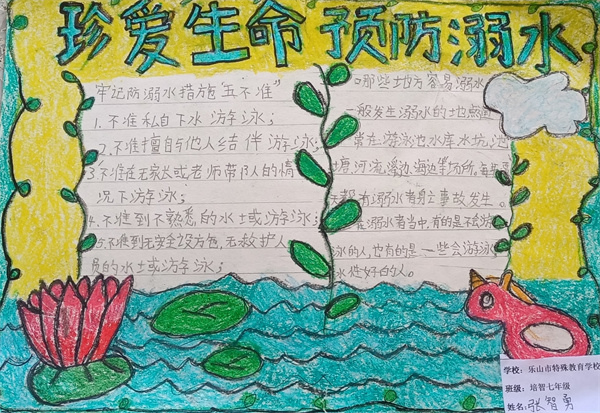 珍爱生命 预防溺水
牢记防溺水措施"五不准"
1.不准私自下水游泳；
2.不准擅自与他人结伴游泳；
3不准在无家长或老师带队人的情
况下游泳；
4.不准到不熟悉的水土或游泳；
5.不准到无安全设方包,无救护人
员的水土或游泳；
哪些地方容易溺水
一般发生溺水的土地点
常在游泳池水库水坑,池
塘,河流,溪边,海边等场所,每
都有溺水者身亡事故发生。
在溺水者当中,有的是不会游
泳的人,也有的是一些会游泳
水性好的人。
学校：乐山市特殊教育学校
班级：培智七年级
姓名：张智勇